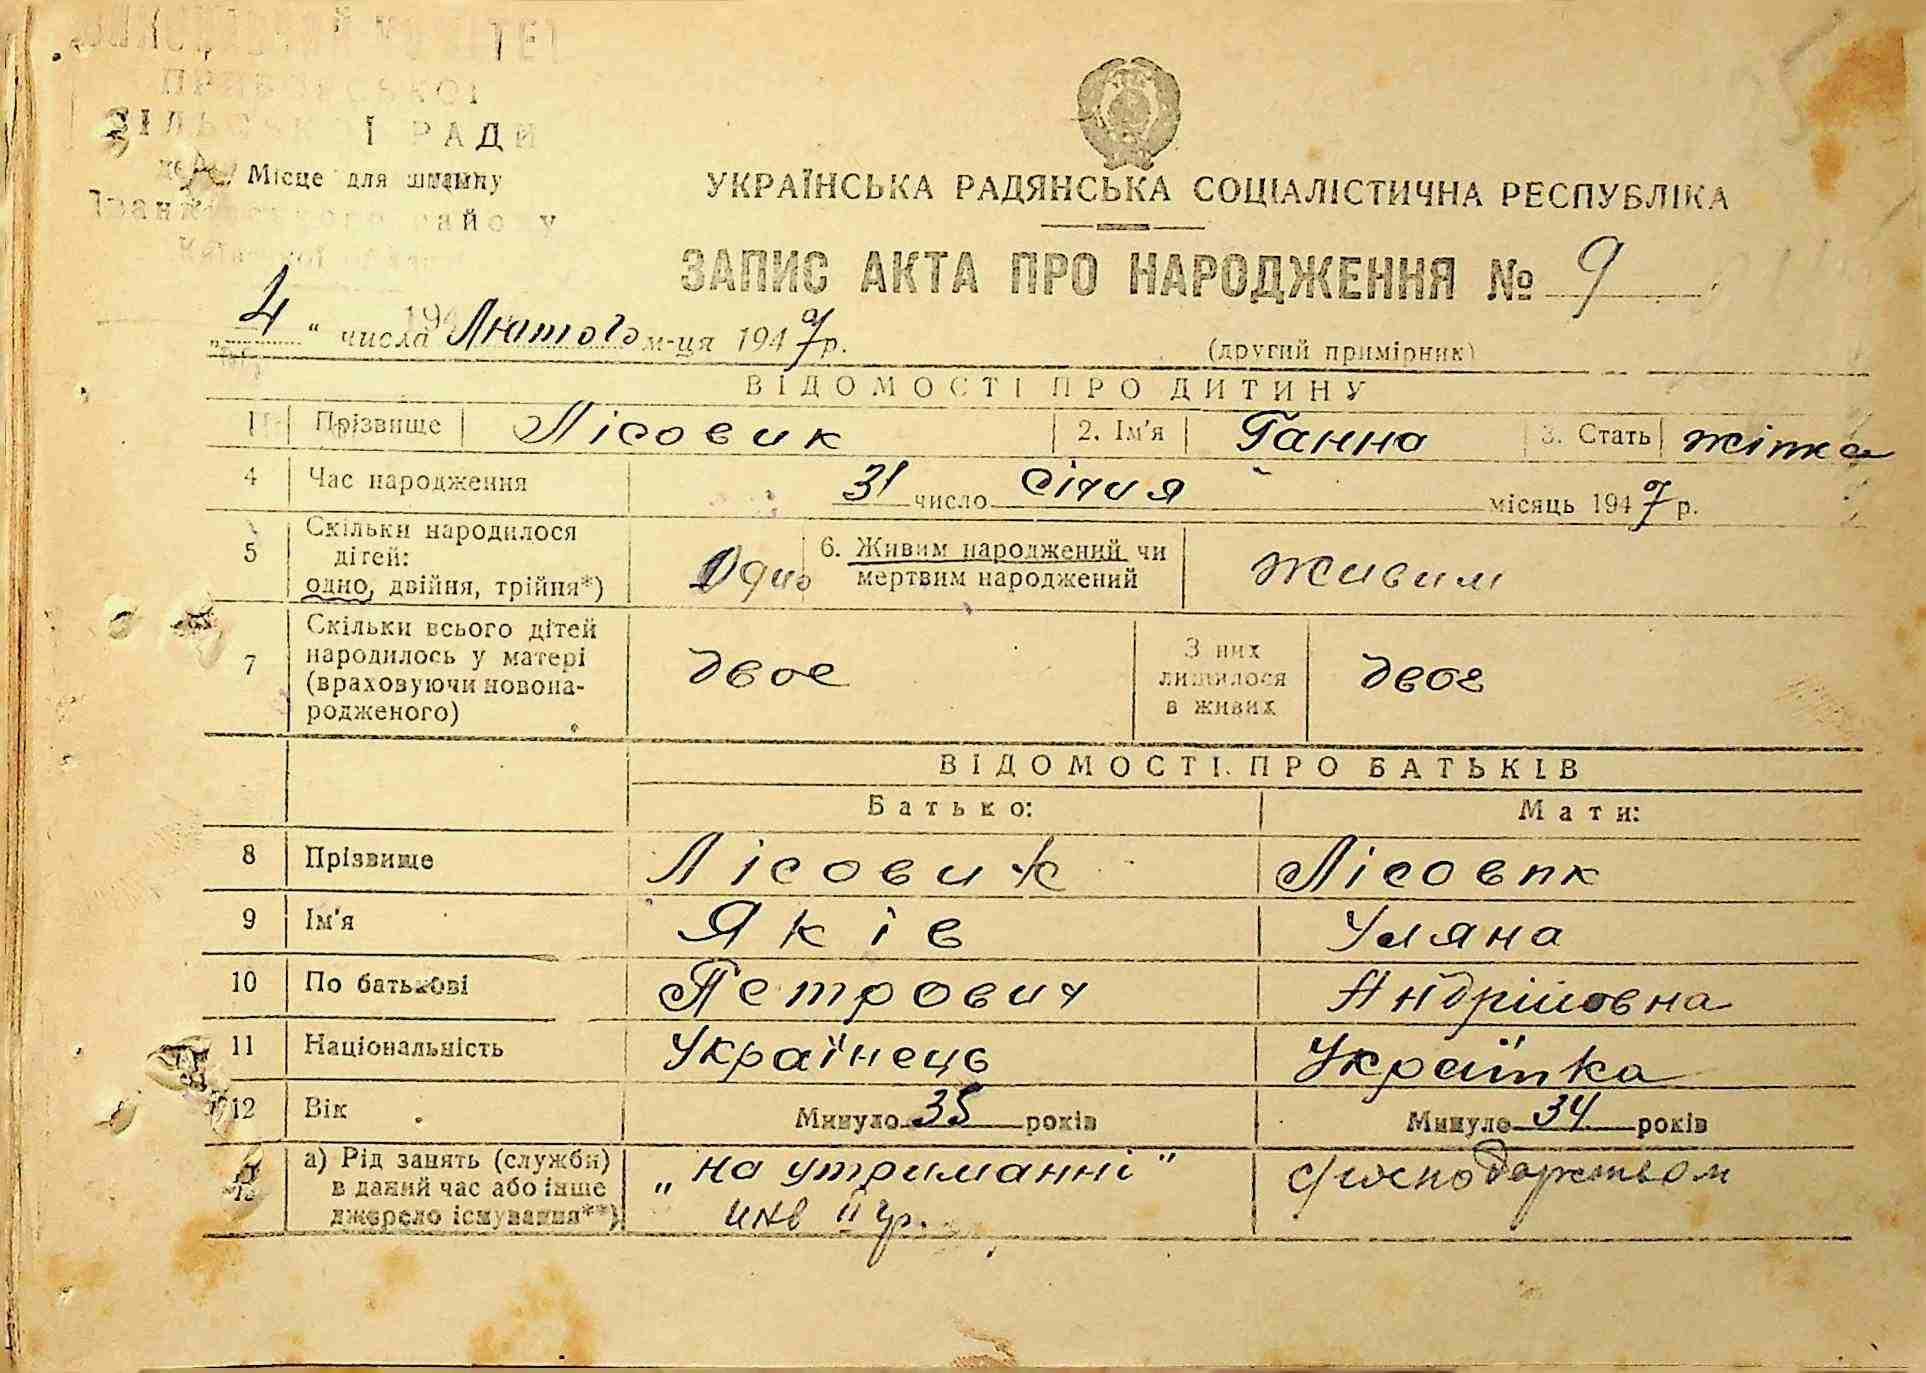 СІЛЬСЬКОЇ РАДИ
Місце для штампу
району
УКРАЇНСЬКА РАДЯНСЬКА СОЦІАЛІСТИЧНА РЕСПУБЛІКА
ЗАПИС АКТА ПРО НАРОДЖЕННЯ № 9
„4“ числа Лютого м-ця 1947 р.
(другий примірник)
ВІДОМОСТІ ПРО ДИТИНУ
1 Прізвище Лісовик 2. Ім'я Ганна 3. Стать жінка
4 Час народження 31 число січня місяць 1947 р.
5 Скільки народилося дітей: одно, двійня, трійня*) Одно 6. Живим народжений чи мертвим народжений живим
7 Скільки всього дітей народилось у матері (враховуючи новонародженого) двоє З них лишилося в живих двоє
ВІДОМОСТІ ПРО БАТЬКІВ
Батько: Мати:
8 Прізвище Лісовик Лісовик
9 Ім'я Яків Уляна
10 По батькові Петрович Андріїовна
11 Національність Українець Українка
12 Вік Минуло 35 років Минуло 34 років
13 а) Рід занять (служби) в даний час або інше джерело існування**) „на утриманні" инв II гр.